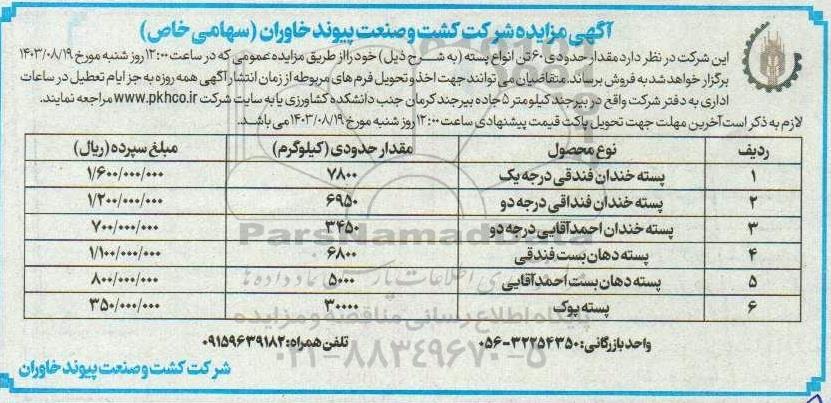 آگهی مزایده شرکت کشت و صنعت پیوند خاوران (سهامی خاص)
این شرکت در نظر دارد مقدار حدودی ۶۰ تن انواع پسته (به شرح ذیل) خود را از طریق مزایده عمومی که در ساعت ۱۲:۰۰ روز شنبه مورخ ۱۴۰۳/۰۸/۱۹
برگزار خواهد شد به فروش برساند. متقاضیان می توانند جهت اخذ و تحویل فرم های مربوطه از زمان انتشار آگهی همه روزه به جز ایام تعطیل در ساعات
اداری به دفتر شرکت واقع در بیرجند کیلومتر ۵ جاده بیرجند کرمان جنب دانشکده کشاورزی یا به سایت شرکت www.pkhco.ir مراجعه نمایند.
لازم به ذکر است آخرین مهلت جهت تحویل پاکت قیمت پیشنهادی ساعت ۱۲:۰۰ روز شنبه مورخ ۱۴۰۳/۰۸/۱۹ می باشد.
ردیف نوع محصول مقدار حدودی (کیلوگرم) مبلغ سپرده (ریال)
۱ پسته خندان فندقی درجه یک ۷۸۰۰ ۱/۶۰۰/۰۰۰/۰۰۰
۲ پسته خندان فنداقی درجه دو ۶۹۵۰ ۱/۲۰۰/۰۰۰/۰۰۰
۳ پسته خندان احمدآقایی درجه دو ۳۴۵۰ ۷۰۰/۰۰۰/۰۰۰
۴ پسته دهان بست فندقی ۶۸۰۰ ۱/۱۰۰/۰۰۰/۰۰۰
۵ پسته دهان بست احمدآقایی ۵۰۰۰ ۸۰۰/۰۰۰/۰۰۰
۶ پسته پوک ۳۰۰۰۰ ۳۵۰/۰۰۰/۰۰۰
ParsNamadData
پایگاه اطلاع رسانی مناقصه و مزایده
۰۲۱-۸۸۳۴۹۶۷۰-۵
واحد بازرگانی: ۳۲۲۵۴۳۵۰-۰۵۶ تلفن همراه: ۰۹۱۵۹۶۳۹۱۸۲
شرکت کشت و صنعت پیوند خاوران